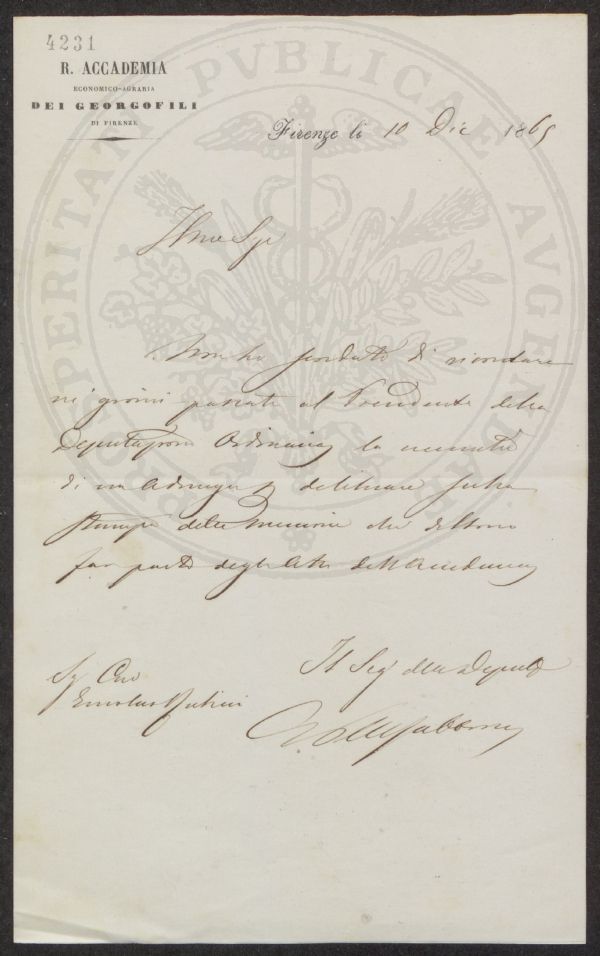 4231
R. ACCADEMIA
ECONOMICO-AGRARIA
DEI GEORGOFILI
DI FIRENZE
PROSPERITATI PVBLICAE AVGENDAE
Firenze li 10 Dic 1865
Non ho perduto di ricordare
nei giorni passati al Presidente della
Deputazione Ordinaria la necessità
di un Adunanza p deliberare sulla
stampa delle Memorie che debbono
far parte degli Atti dell'Accademia
Il Seg della Deput
Sig Cav